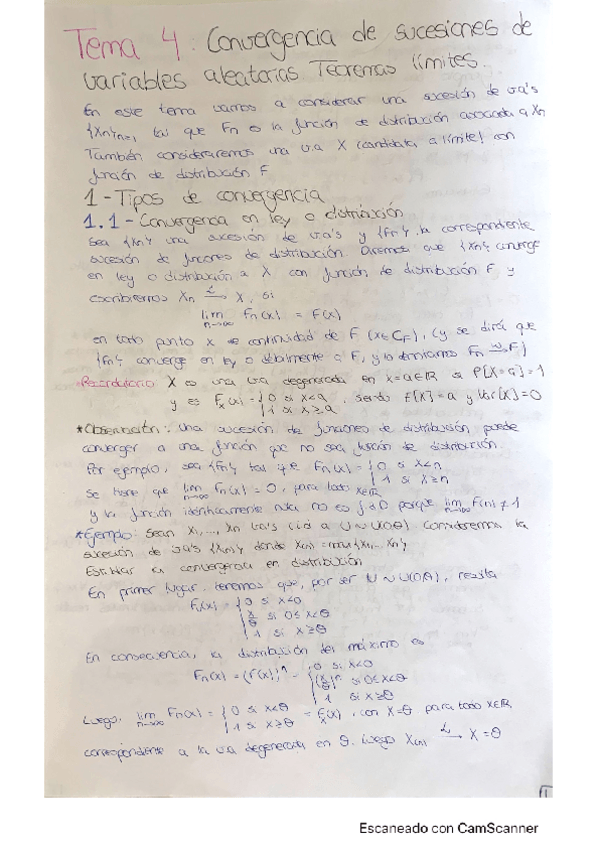 Tema 4: Convergencia de sucesiones de
variables aleatorias Teoremas límites.
En este tema vamos a considerar una sucesión de v.a's
{Xn}n=1 tal que Fn es la función de distribución asociada a Xn
También consideraremos una v.a X (candidata a límite) con
función de distribución F
1-Tipos de convergencia
1.1-Convergencia en ley o distribución
Sea {Xn} una sucesión de v.a's y {Fn} la correspondiente
sucesión de funciones de distribución. Diremos que {Xn} converge
en ley o distribución a X con función de distribución F, y
escribiremos Xn →^L X, si
lim n→∞ Fn(x) = F(x)
en todo punto x de continuidad de F (x∈CF), (y se dirá que
{Fn} converge en ley o débilmente a F, y lo denotamos Fn →^ω F)
Recordatorio X es una v.a degenerada en x=a∈ℝ si P[X=a]=1
y es Fx(x) = {0 si x<a, 1 si x≥a, siendo E[X]=a y Var[X]=0
*Observación: Una sucesión de funciones de distribución puede
converger a una función que no sea función de distribución.
Por ejemplo, sea {Fn} tal que Fn(x) = {0 si x<n, 1 si x≥n
Se tiene que lim n→∞ Fn(x) = 0, para todo x∈ℝ
y la función idénticamente nula no es f.d D porque lim F(n) ≠ 1
*Ejemplo: Sean X1,..., Xn v.a's iid a U~U(0,θ) Consideremos la
sucesión de v.a's {X(n)} donde X(n) = max{X1,...Xn}
Estudiar la convergencia en distribución
En primer lugar, tenemos que, por ser U~U(0,θ), resulta
F(x) = {0 si x<0
x/θ si 0≤x<θ
1 si x≥θ
En consecuencia, la distribución del máximo es
Fn(x) = (F(x))^n = {0 si x<0
(x/θ)^n si 0≤x<θ
1 si x≥θ
Luego, lim n→∞ Fn(x) = {0 si x<θ, 1 si x≥θ = Fx(x), con X=θ para todo x∈ℝ
correspondiente a la v.a degenerada en θ. Luego X(n) →^L X=θ
1
Escaneado con CamScanner